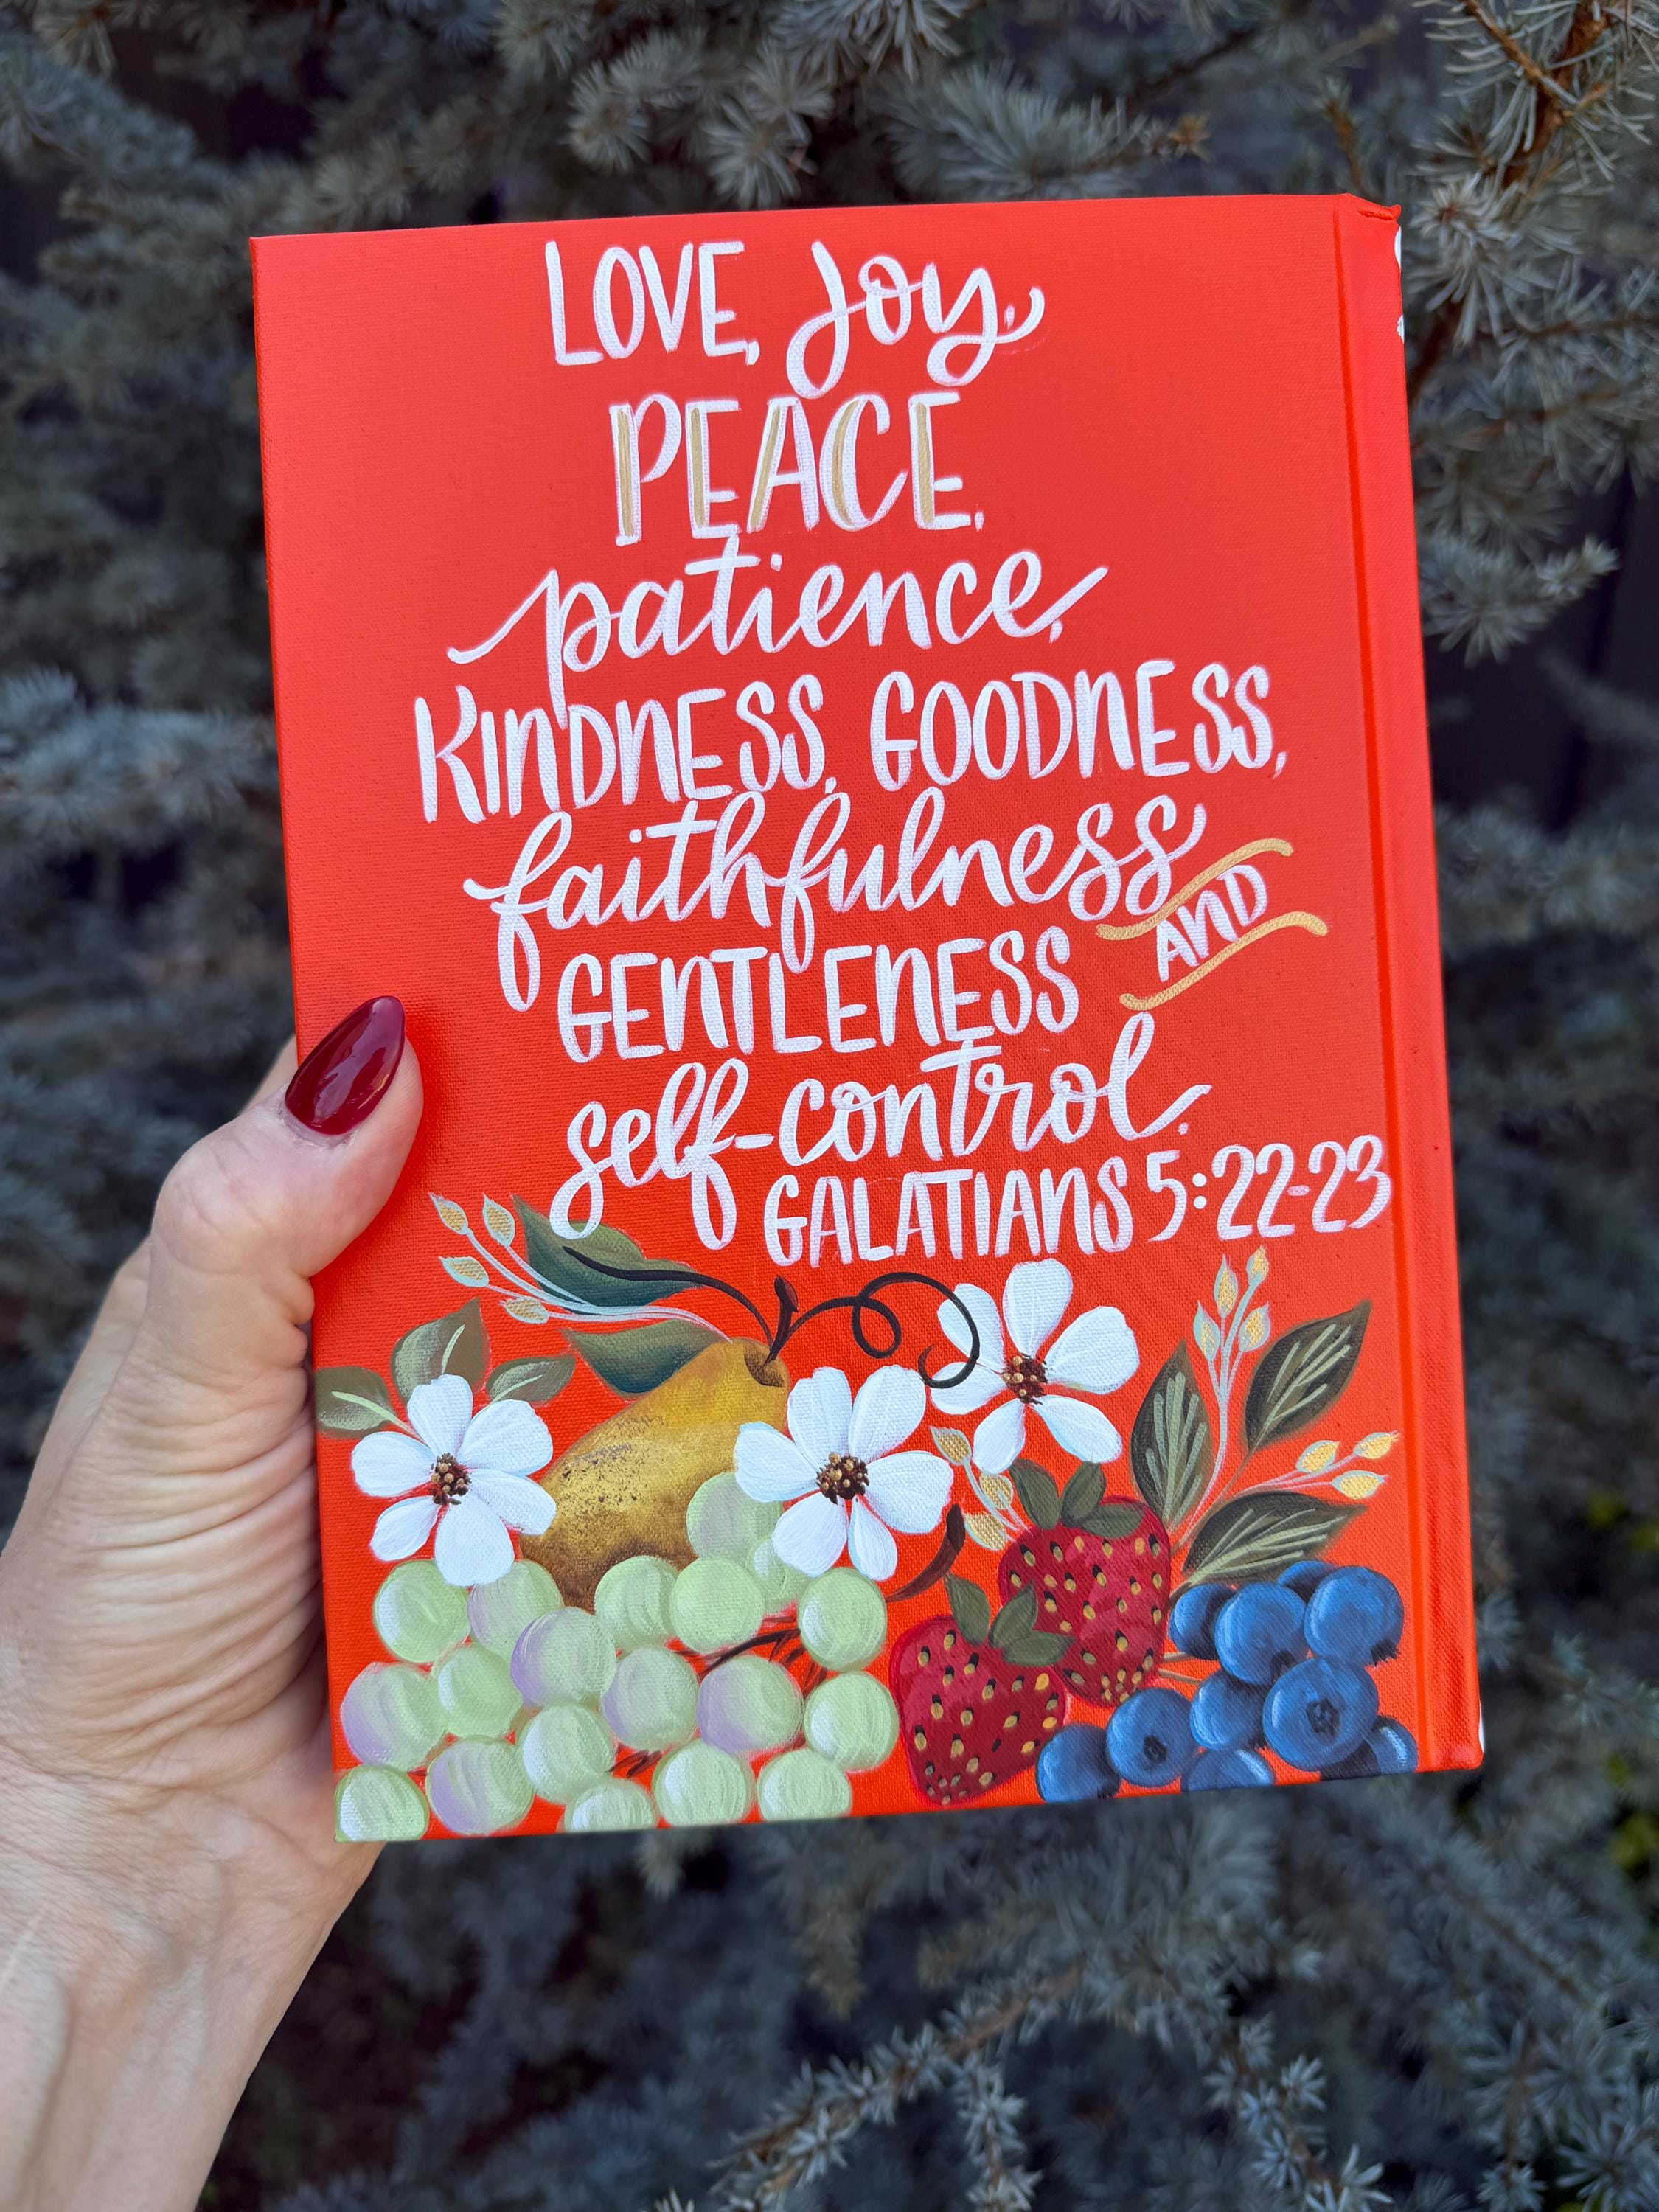 LOVE, Joy,
PEACE,
patience,
KINDNESS, GOODNESS,
faithfulness
AND
GENTLENESS
self-control.
GALATIANS 5:22-23